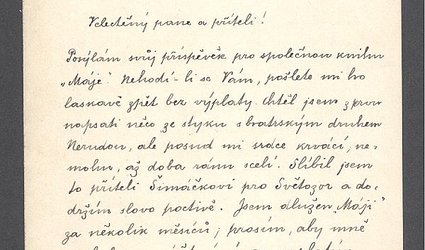 Velectěný pane a příteli!
Posýlám svůj příspěvek pro společnou knihu
„Máje“. Nehodí-li se Vám, pošlete mi ho
laskavě zpět bez výplaty. Chtěl jsem z prvu
napsati něco ze styku s bratrským druhem
Nerudou, ale posud mi srdce krvácí, ne-
mohu, až doba ránu scelí. Slíbil jsem
to příteli Šimáčkovi pro Světozor a do-
držím slovo poctivě. Jsem dlužen „Máji“
za několik měsíců; prosím, aby mně